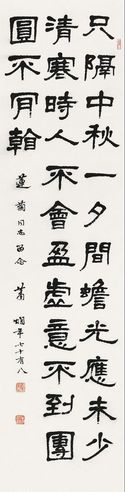 只隔中秋一夕間蟾光應未少
清寒時人不會盈虛意不到團
圓不肎看
蓮 同志留念 蕭嫻年七十有八